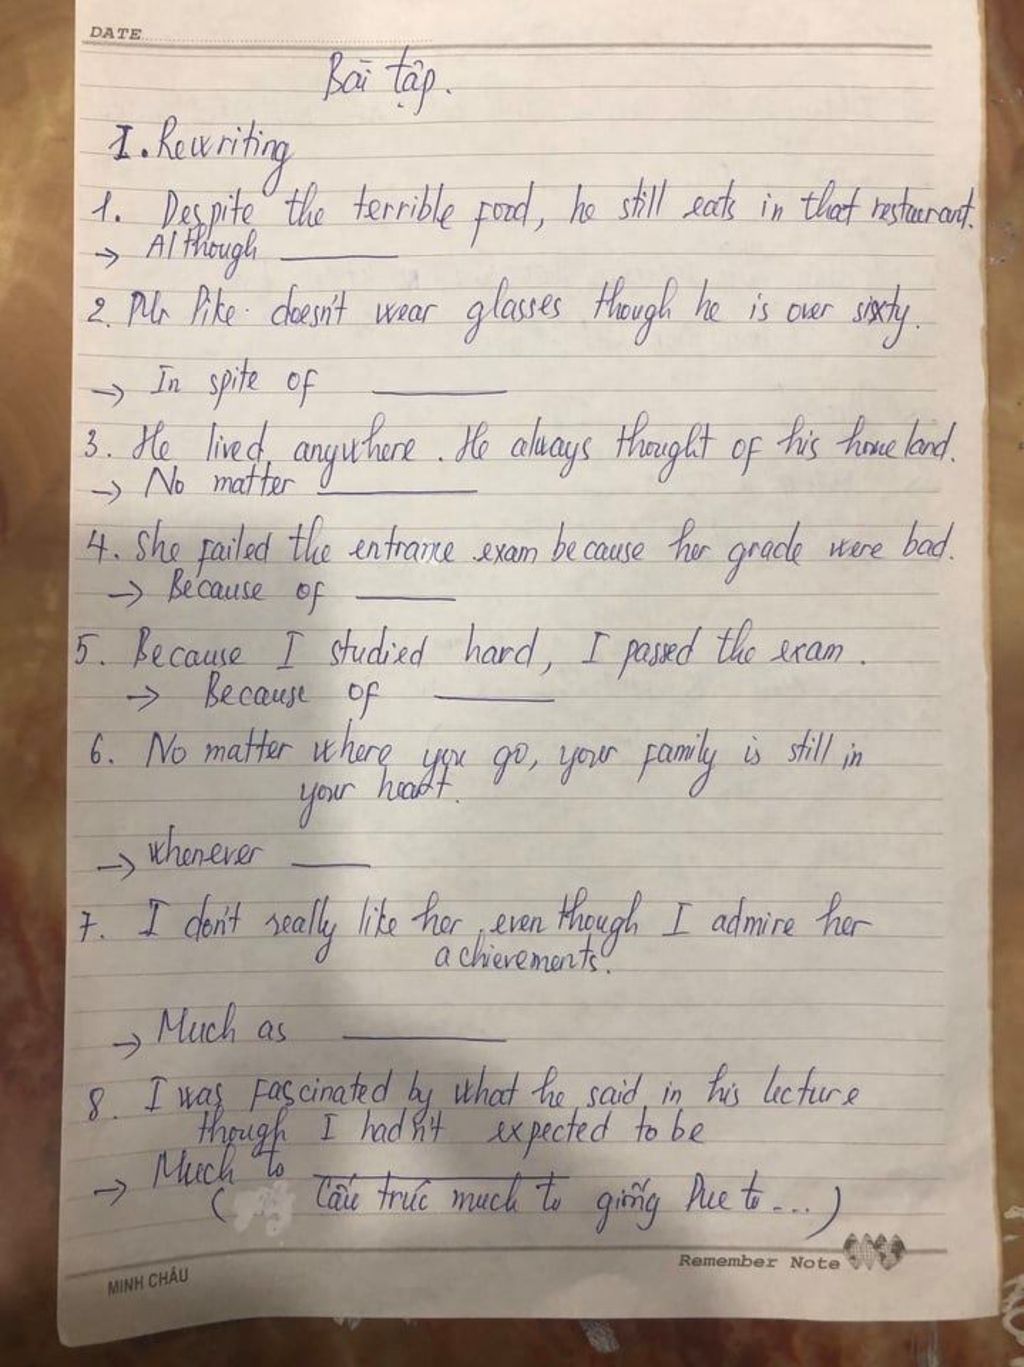 DATE
Bài tập.
I. Rewriting
1. Despite the terrible food, he still eats in that restaurant.
→ Although ______
2. Mr Pike doesn't wear glasses though he is over sixty.
→ In spite of ______
3. He lived anywhere. He always thought of his home land.
→ No matter ______
4. She failed the entrance exam because her grade were bad.
→ Because of ______
5. Because I studied hard, I passed the exam.
→ Because of ______
6. No matter where you go, your family is still in
your heart.
→ Whenever ______
7. I don't really like her, even though I admire her
achievements.
→ Much as ______
8. I was fascinated by what he said in his lecture
though I hadn't expected to be
→ Much to ______
( Cấu trúc much to giống Due to ... )
Remember Note
MINH CHÂU